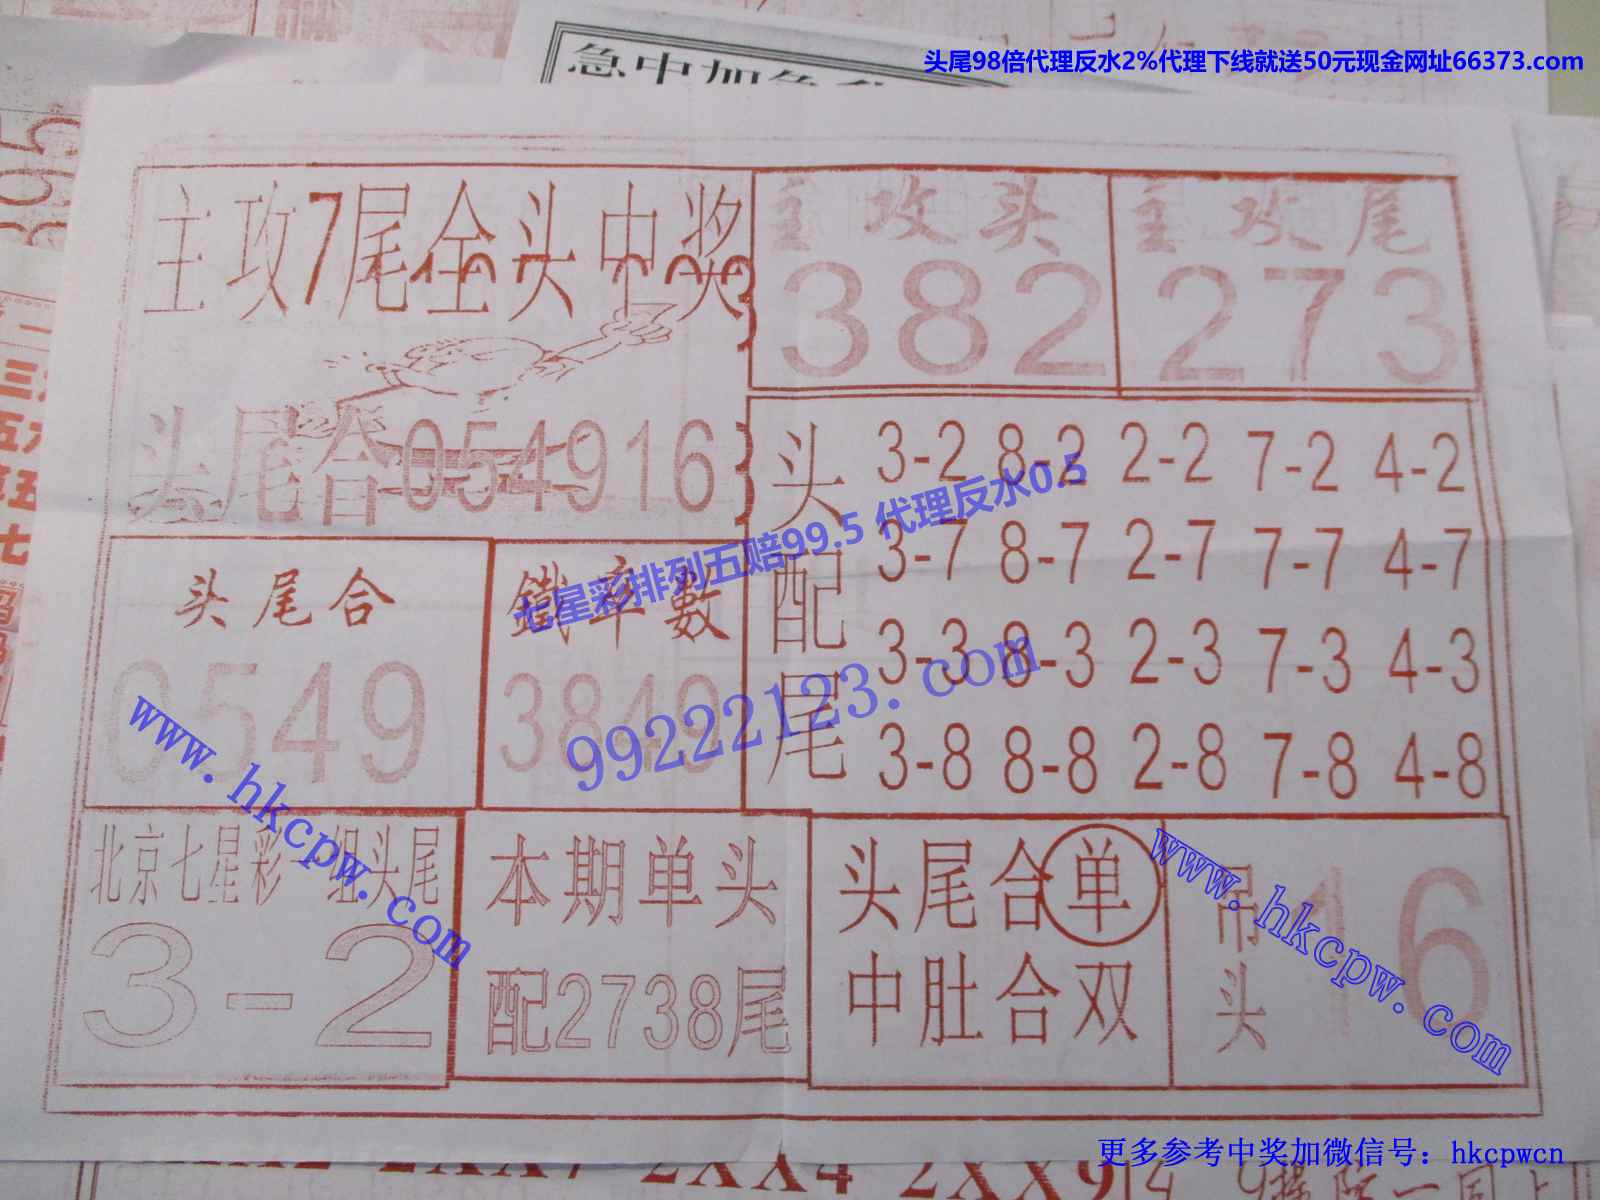 急中加急
头尾98倍代理反水2%代理下线就送50元现金网址66373.com
主攻7尾全头中奖
主攻头
382
主攻尾
273
头尾合054916
头配尾
3-2 8-2 2-2 7-2 4-2
3-7 8-7 2-7 7-7 4-7
3-3 8-3 2-3 7-3 4-3
3-8 8-8 2-8 7-8 4-8
七星彩排列五赔99.5 代理反水0.5
99222123.com
头尾合
0549
鐵率數
3849
www.hkcpw.com
北京七星彩一组头尾
3-2
本期单头
配2738尾
头尾合单
中肚合双
吊头
16
www.hkcpw.com
更多参考中奖加微信号：hkcpwcn
2XX7 2XX4 2XX9